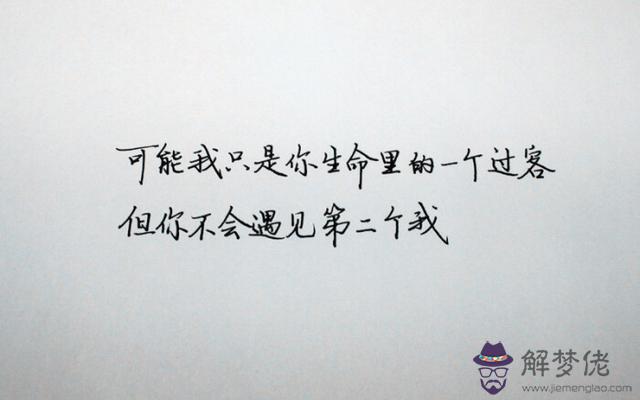 可能我只是你生命里的一个过客
但你不会遇见第二个我
解梦佬
www.jiemenglao.com